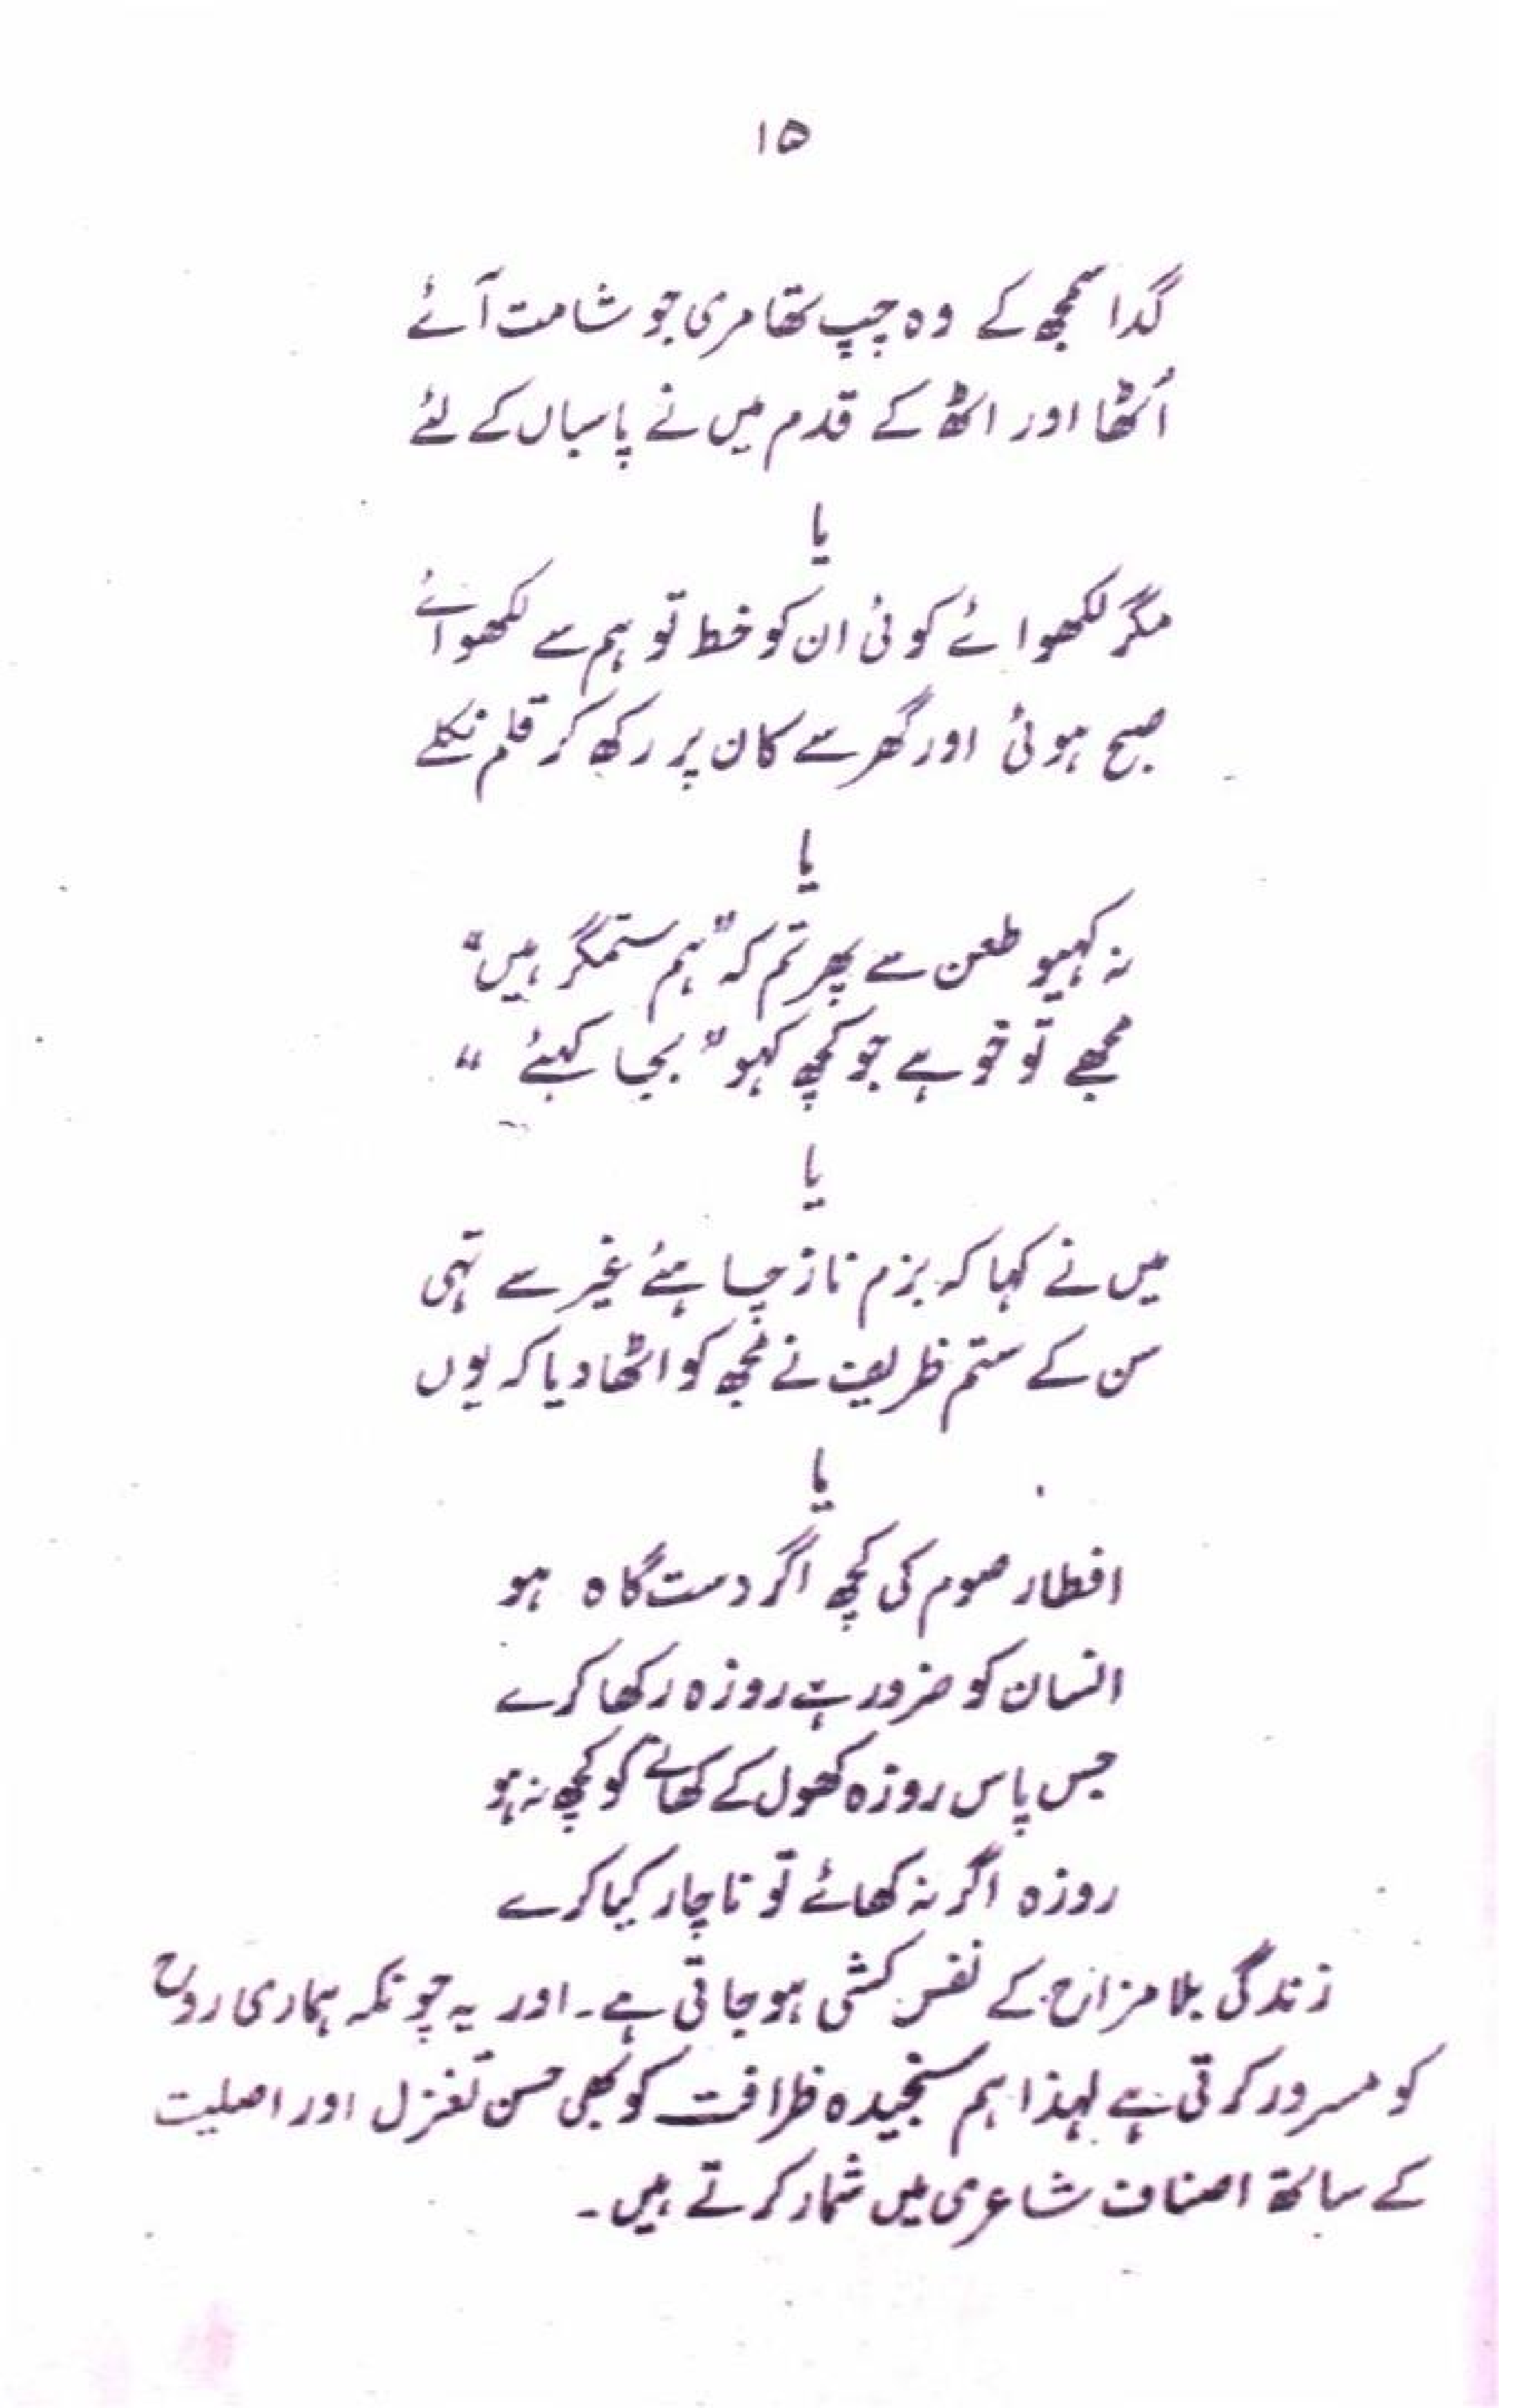 ۱۵
گدا سمجھ کے وہ چپ تھا مری جو شامت آئے
اُٹھا اور اٹھ کے قدم میں نے پاسباں کے لئے
یا
مگر لکھوائے کوئی ان کو خط تو ہم سے لکھوائے
صبح ہوئی اور گھر سے کان پر رکھ کر قلم نکلے
یا
نہ کہیو طعن سے پھر تم کہ "ہم ستمگر ہیں"
مجھے تو خو ہے جو کچھ کہو "بجا کہئے"
یا
میں نے کہا کہ بزم ناز چاہئے غیر سے تہی
سن کے ستم ظریف نے مجھ کو اٹھا دیا کہ یوں
یا
افطار صوم کی کچھ اگر دست گاہ ہو
انسان کو ضرور ہے روزہ رکھا کرے
جس پاس روزہ کھول کے کھانے کو کچھ نہ ہو
روزہ اگر نہ کھائے تو ناچار کیا کرے
زندگی بلا مزاح کے نفس کشی ہو جاتی ہے۔ اور یہ چونکہ ہماری روح
کو مسرور کرتی ہے لہذا ہم سنجیدہ ظرافت کو بھی حسن تغزل اور اصلیت
کے ساتھ اصناف شاعری میں شمار کرتے ہیں۔